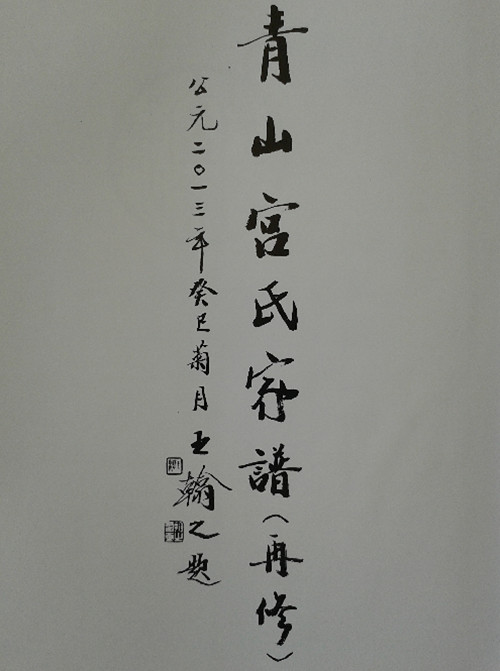 青山宫氏家譜（再修）
公元二〇一三年癸巳菊月王翰之题